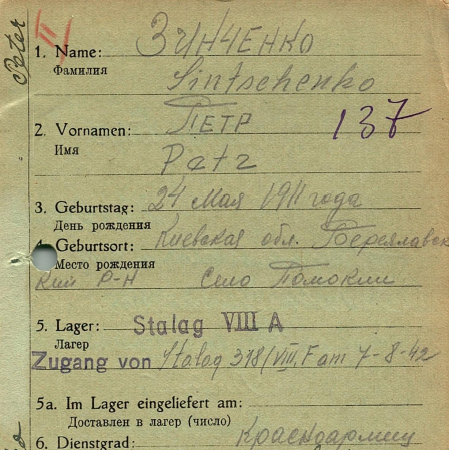 Peter
1. Name: ЗИНЧЕНКО
Фамилия Sintschenko
2. Vornamen: ПЕТР 137
Имя Petr
3. Geburtstag: 24 Мая 1911 года
День рождения
4. Geburtsort: Киевская обл. Переяславс
Место рождения
кий Р-Н Село Помокли
5. Lager: Stalag VIII A
Лагер
Zugang von Stalag 318/VIII F am 7-8-42
5a. Im Lager eingeliefert am:
Доставлен в лагер (число)
6. Dienstgrad: Красноармиец